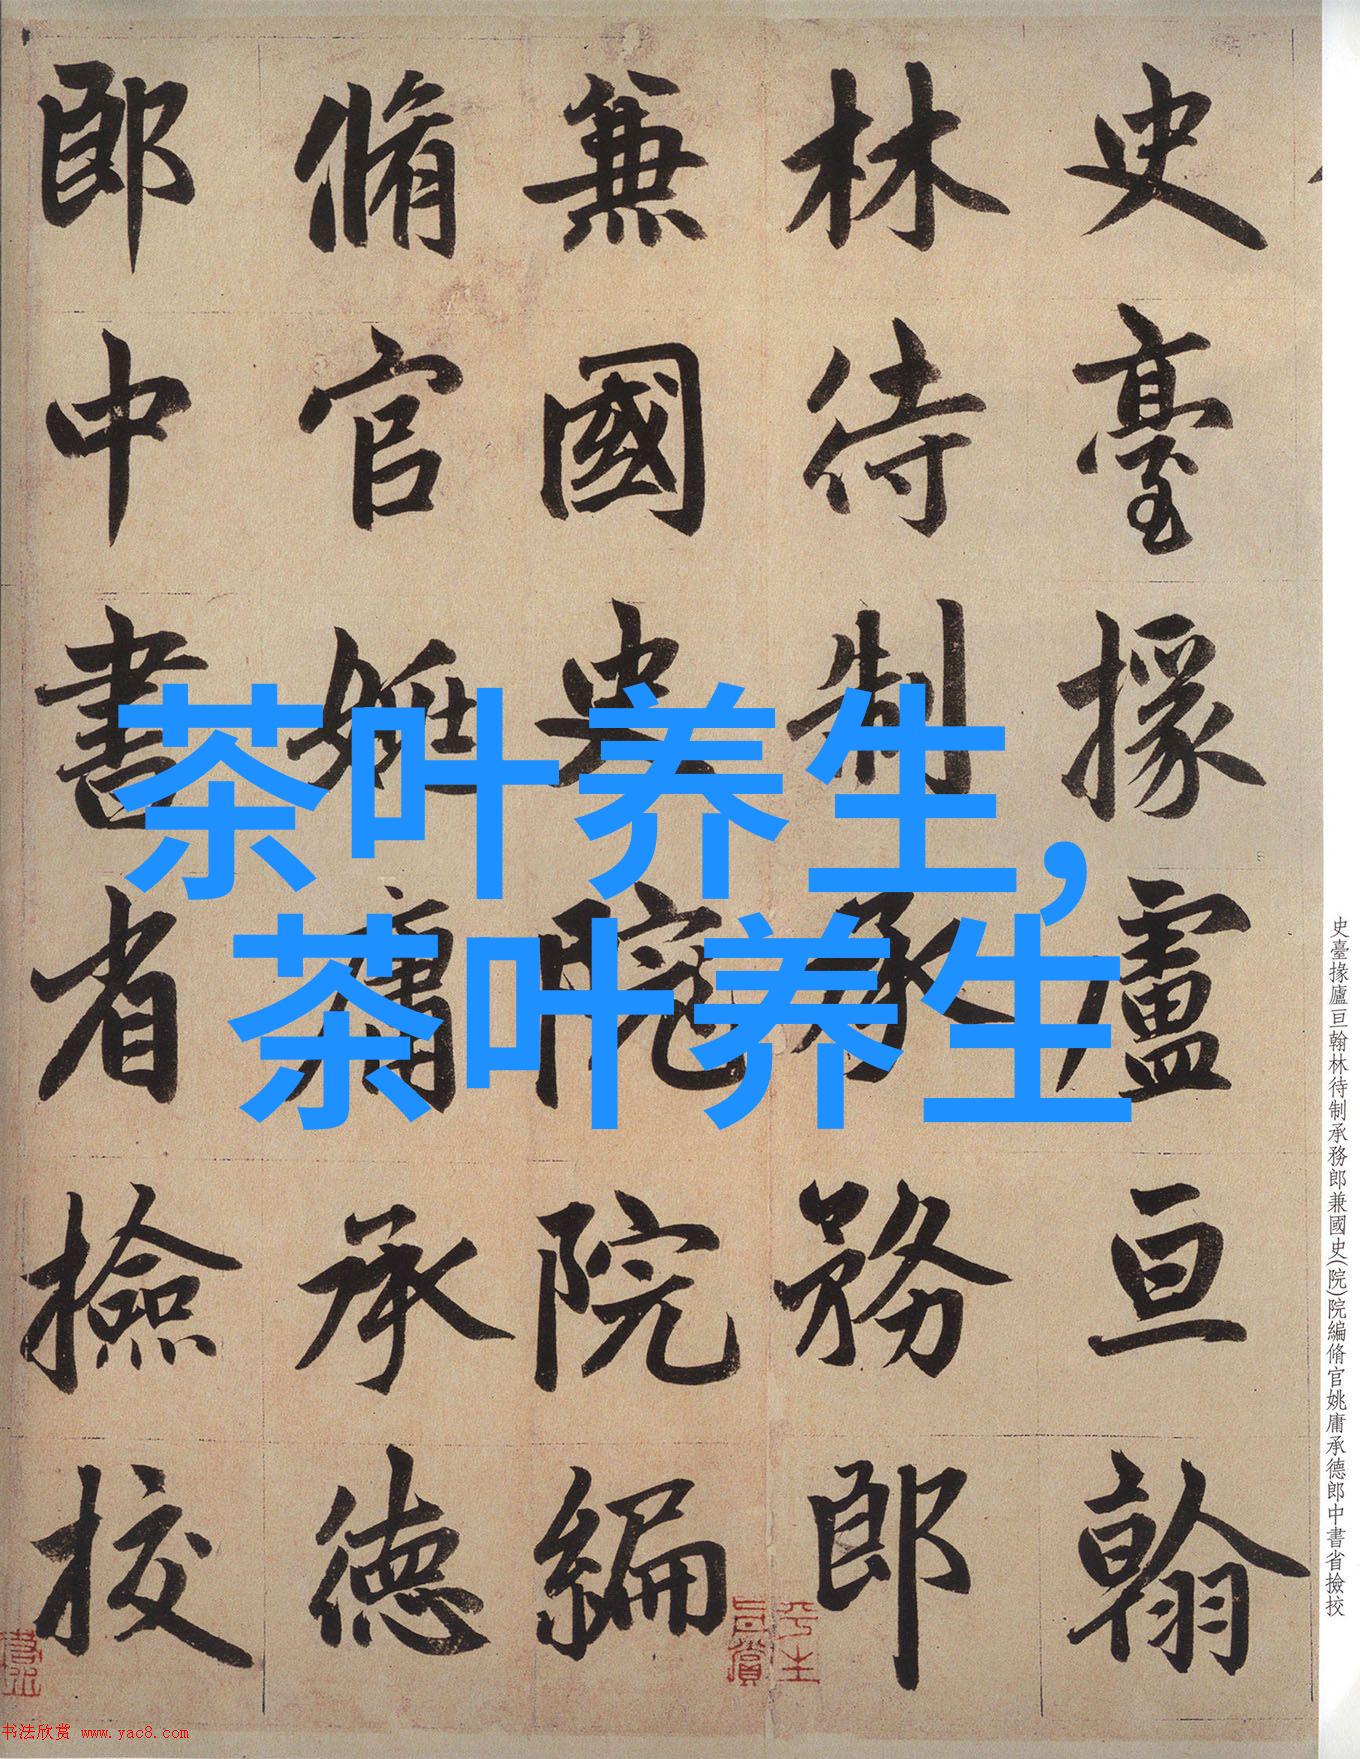 史臺掾盧亘翰
林待制承務郎
兼國史院院編
脩官姚庸承德
郎中書省撿挍
茶叶养生，
茶叶养生
史臺掾廬亘翰林待制承務郎兼國史(院)院編脩官姚庸承德郎中書省撿挍
平生
书法欣赏 www.yac8.com